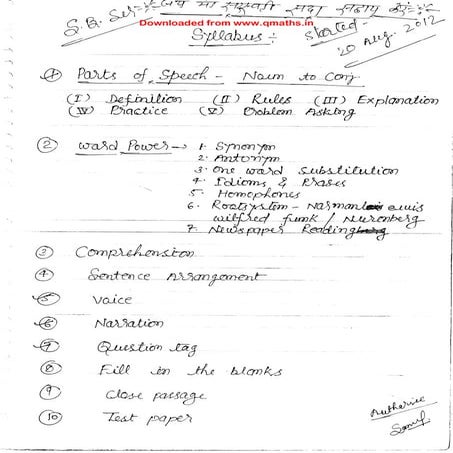 S.B. Sir जय माँ सरस्वती सदा सहाय
Downloaded from www.qmaths.in
Syllabus :
Started - 20 Aug. 2012
① Parts of Speech - Noun to Conj
(I) Definition (II) Rules (III) Explanation
(IV) Practice (V) Problem Asking
② Word Power → 1. Synonym
2. Antonym
3. One word substitution
4. Idioms & Frases
5. Homophones
6. Rootsystem - Norman
wilfred funk / Nurenberg
7. Newspaper Reading
③ Comprehension
④ Sentence Arrangement
⑤ Voice
⑥ Narration
⑦ Question tag
⑧ Fill in the blanks
⑨ Close passage
⑩ Test paper